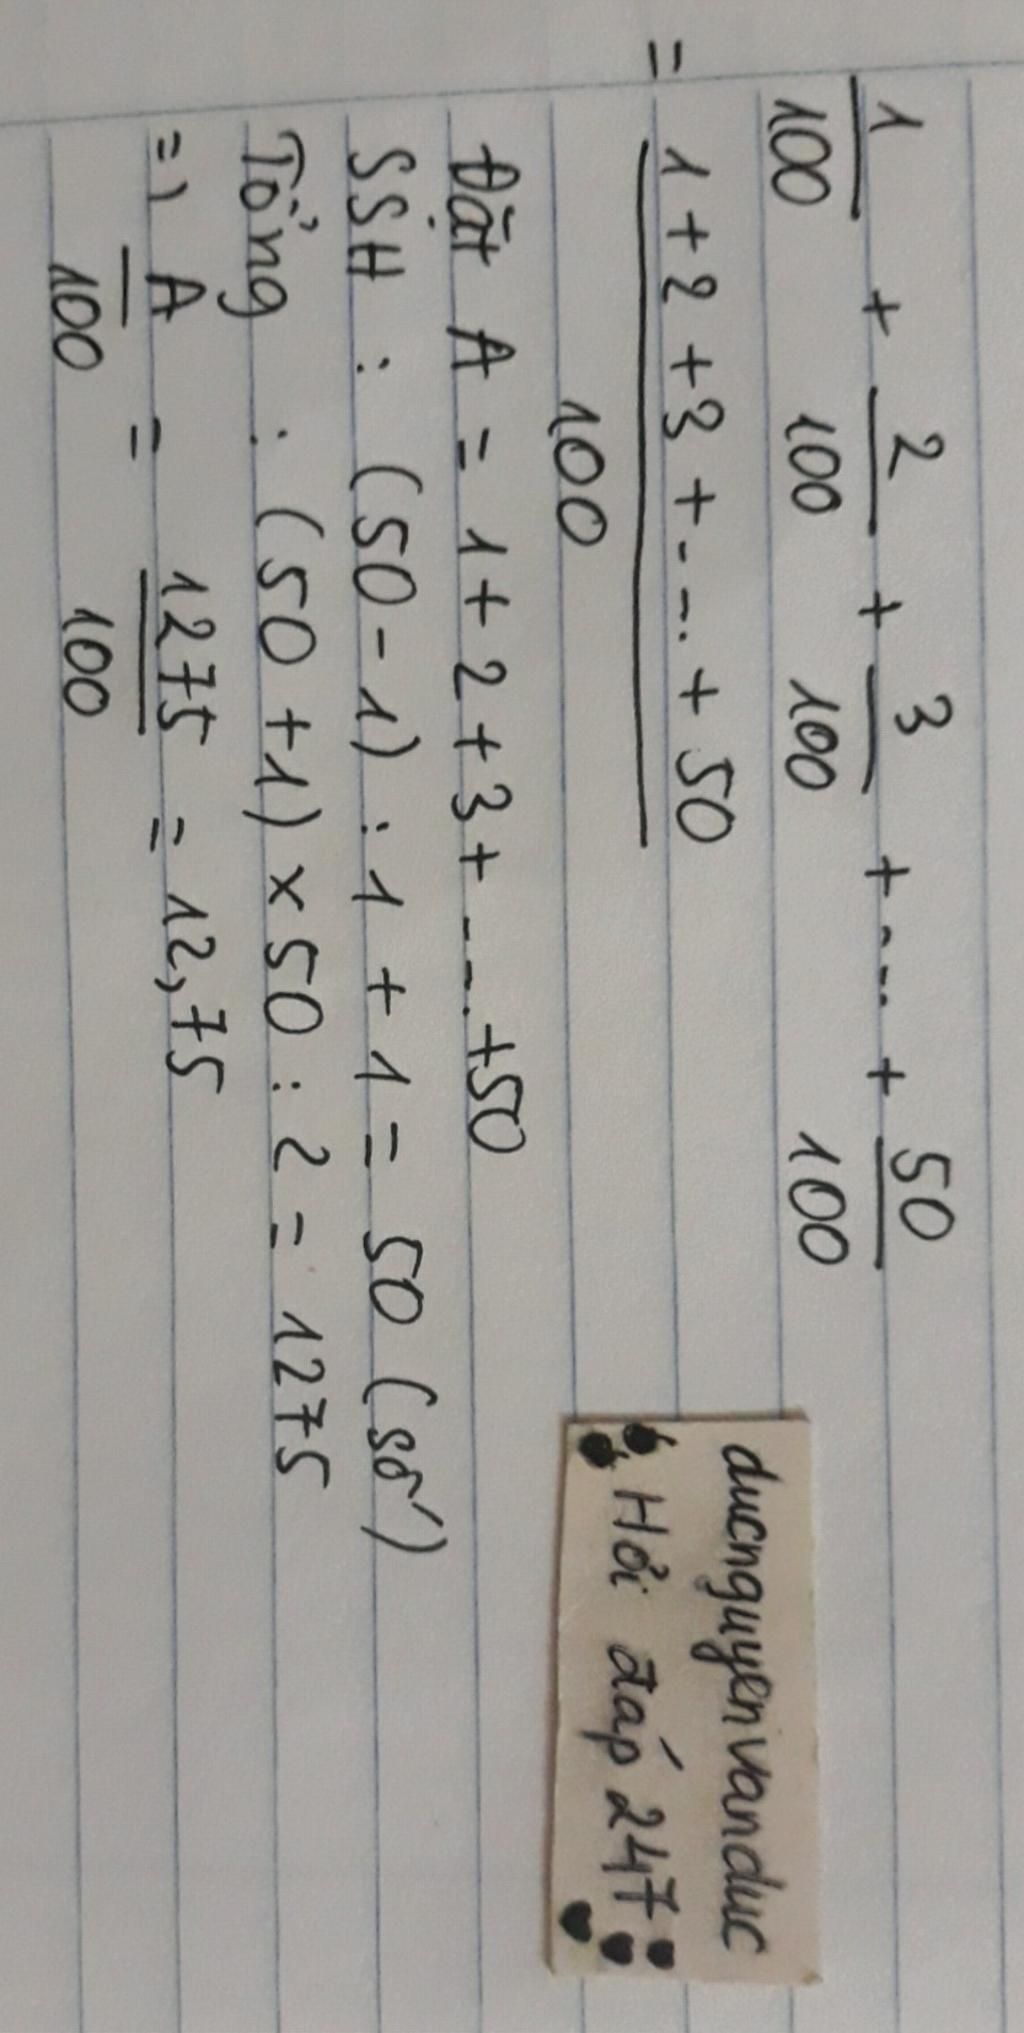 1/100 + 2/100 + 3/100 + ... + 50/100
= 1 + 2 + 3 + .... + 50 / 100
Đặt A = 1 + 2 + 3 + .... + 50
SSH : (50 - 1) : 1 + 1 = 50 (số)
Tổng : (50 + 1) x 50 : 2 = 1275
=> A/100 = 1275/100 = 12,75
ducnguyenvanduc
Hỏi đáp 247